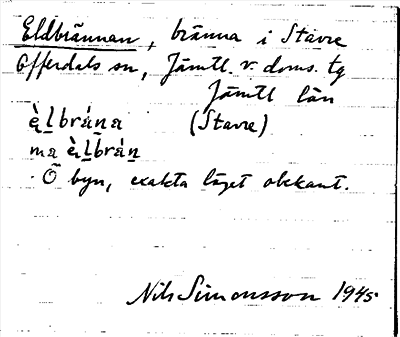 Eldbrännan, bränna i Stavre
Offerdals sn, Jämtl. v. doms. tg
Jämtl län
ę̀l̲brána (Stavre)
ma ę̀l̲brán̲
Ö byn, exakta läget obekant.
Nils Simonsson 1945